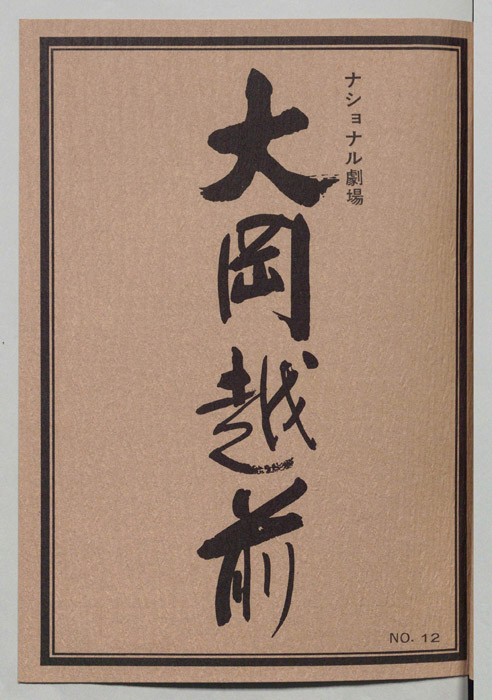 ナショナル劇場
大岡越前
NO. 12